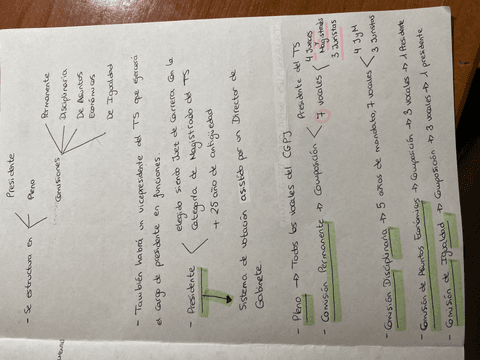 - Se estructura en
Presidente
Pleno
Comisiones
Permanente
Disciplinaria
De Asuntos
Económicos
De Igualdad
- También habrá un vicepresidente del TS que ejercerá
el cargo de presidente en funciones.
- Presidente
elegido siendo Juez de Carrera con la
categoría de Magistrado del TS
+ 25 años de antigüedad
Sistema de votación asistido por un Director de
Gabinete.
- Pleno → Todos los vocales del CGPJ
- Comisión Permanente → Composición
Presidente del TS
7 vocales
4 Jueces
y
Magistrados
3 Juristas
- Comisión Disciplinaria → 5 años de mandato, 7 vocales
4 J y M
3 Juristas
- Comisión de Asuntos Económicos → Composición → 3 vocales → 1 Presidente
- Comisión de Igualdad → Composición → 3 vocales → 1 presidente